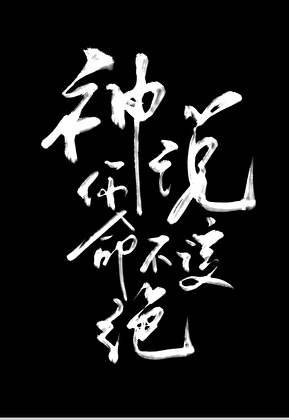 神说
你
命不该
绝